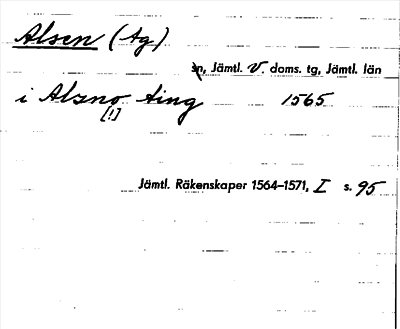 Alsen (tg)
sn, Jämtl. V. doms. tg, Jämtl. län
i Alzno ting 1565
[!]
Jämtl. Räkenskaper 1564–1571, I s. 95